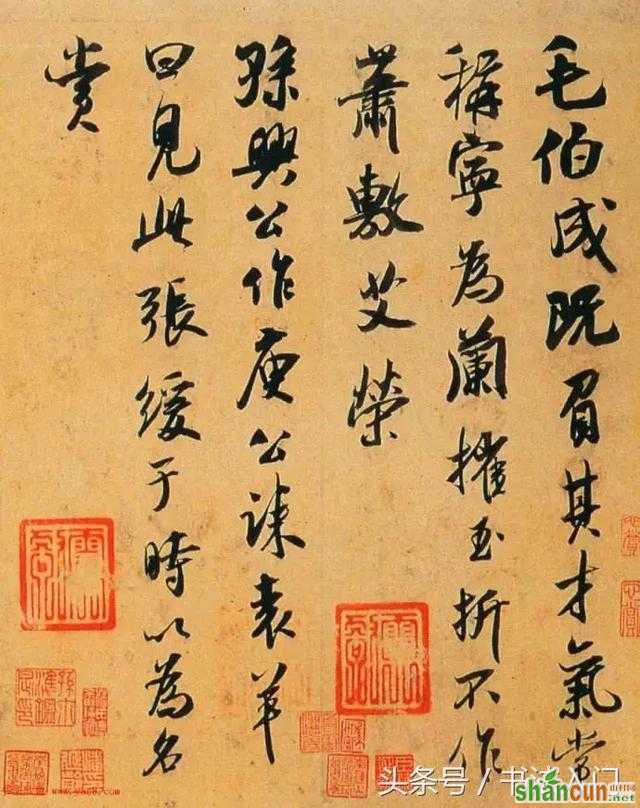 毛伯成既負其才氣常
稱寧為蘭摧玉折不作
蕭敷艾榮
孫興公作庾公誄袁羊
曰見此張緩于時以為名
賞
头条号 / 书法入门
shancun
.net